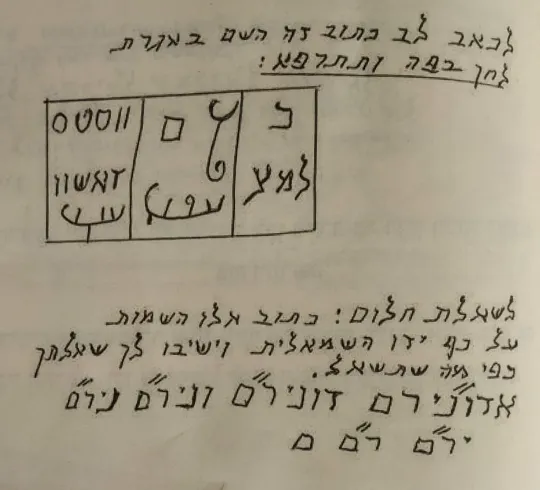 לכאב לב כתוב זה השם באגרת
לחך בפה ותתרפא:
כ
למצ
ם
לשאלת חלום: כתוב אלו השמות
על כף ידו השמאלית וישיבו לך שאלתך
כפי מה שתשאל.
אדוני״רם דוניר״ם וניר״ם ניר״ם
יר״ם ר״ם ם